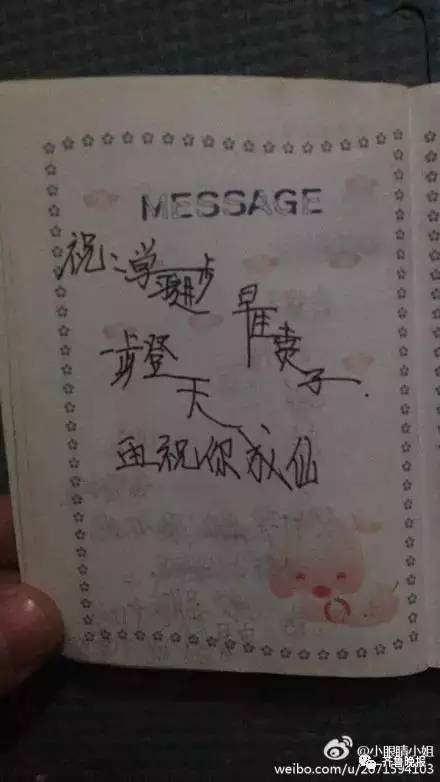 MESSAGE
祝:学业进步
早生贵子.
一步登天
再祝你成仙
@小眼睛小姐
齐鲁晚报